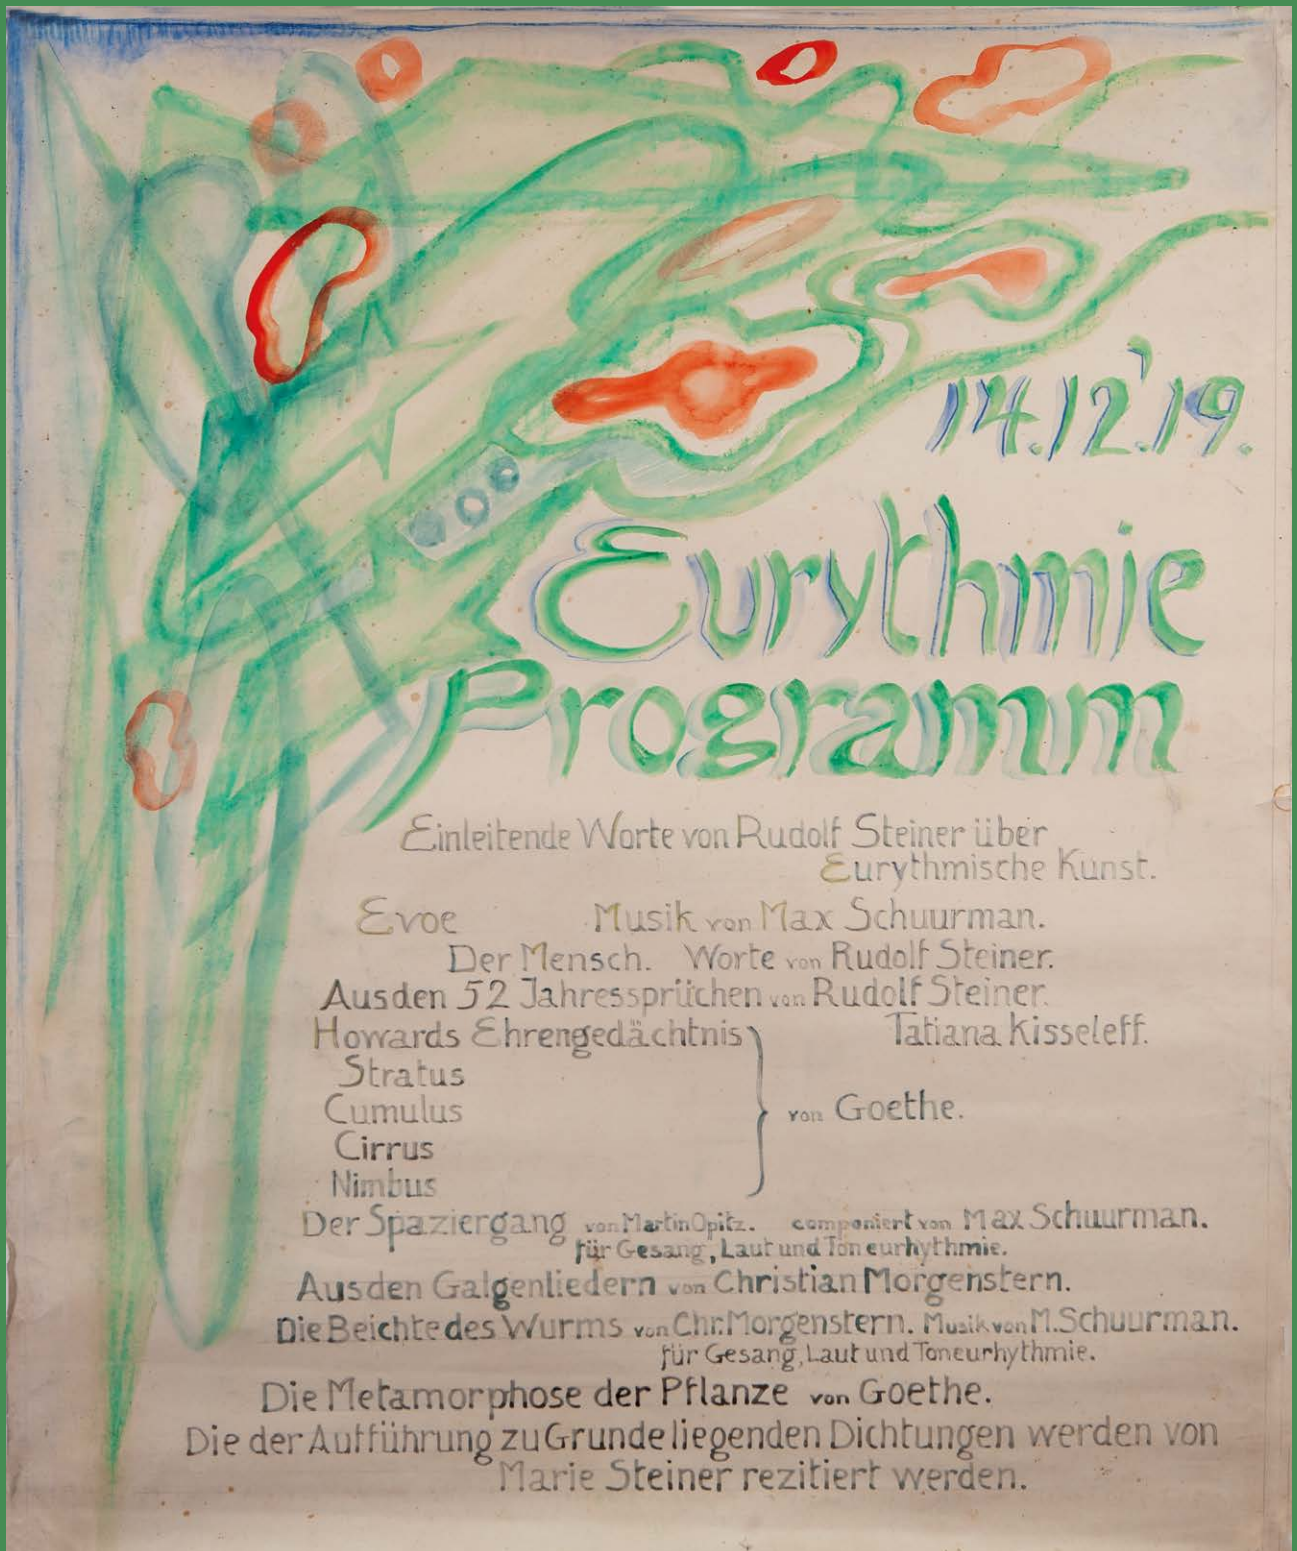 14.12.'19.
Eurythmie
Programm
Einleitende Worte von Rudolf Steiner über
Eurythmische Kunst.
Evoe Musik von Max Schuurman.
Der Mensch. Worte von Rudolf Steiner.
Aus den 52 Jahressprüchen von Rudolf Steiner.
Tatiana Kisseleff.
Howards Ehrengedächtnis
Stratus
Cumulus
von Goethe.
Cirrus
Nimbus
Der Spaziergang von Martin Opitz. componiert von Max Schuurman.
für Gesang, Laut und Toneurhythmie.
Aus den Galgenliedern von Christian Morgenstern.
Die Beichte des Wurms von Chr. Morgenstern. Musik von M. Schuurman.
für Gesang, Laut und Toneurhythmie.
Die Metamorphose der Pflanze von Goethe.
Die der Aufführung zu Grunde liegenden Dichtungen werden von
Marie Steiner rezitiert werden.